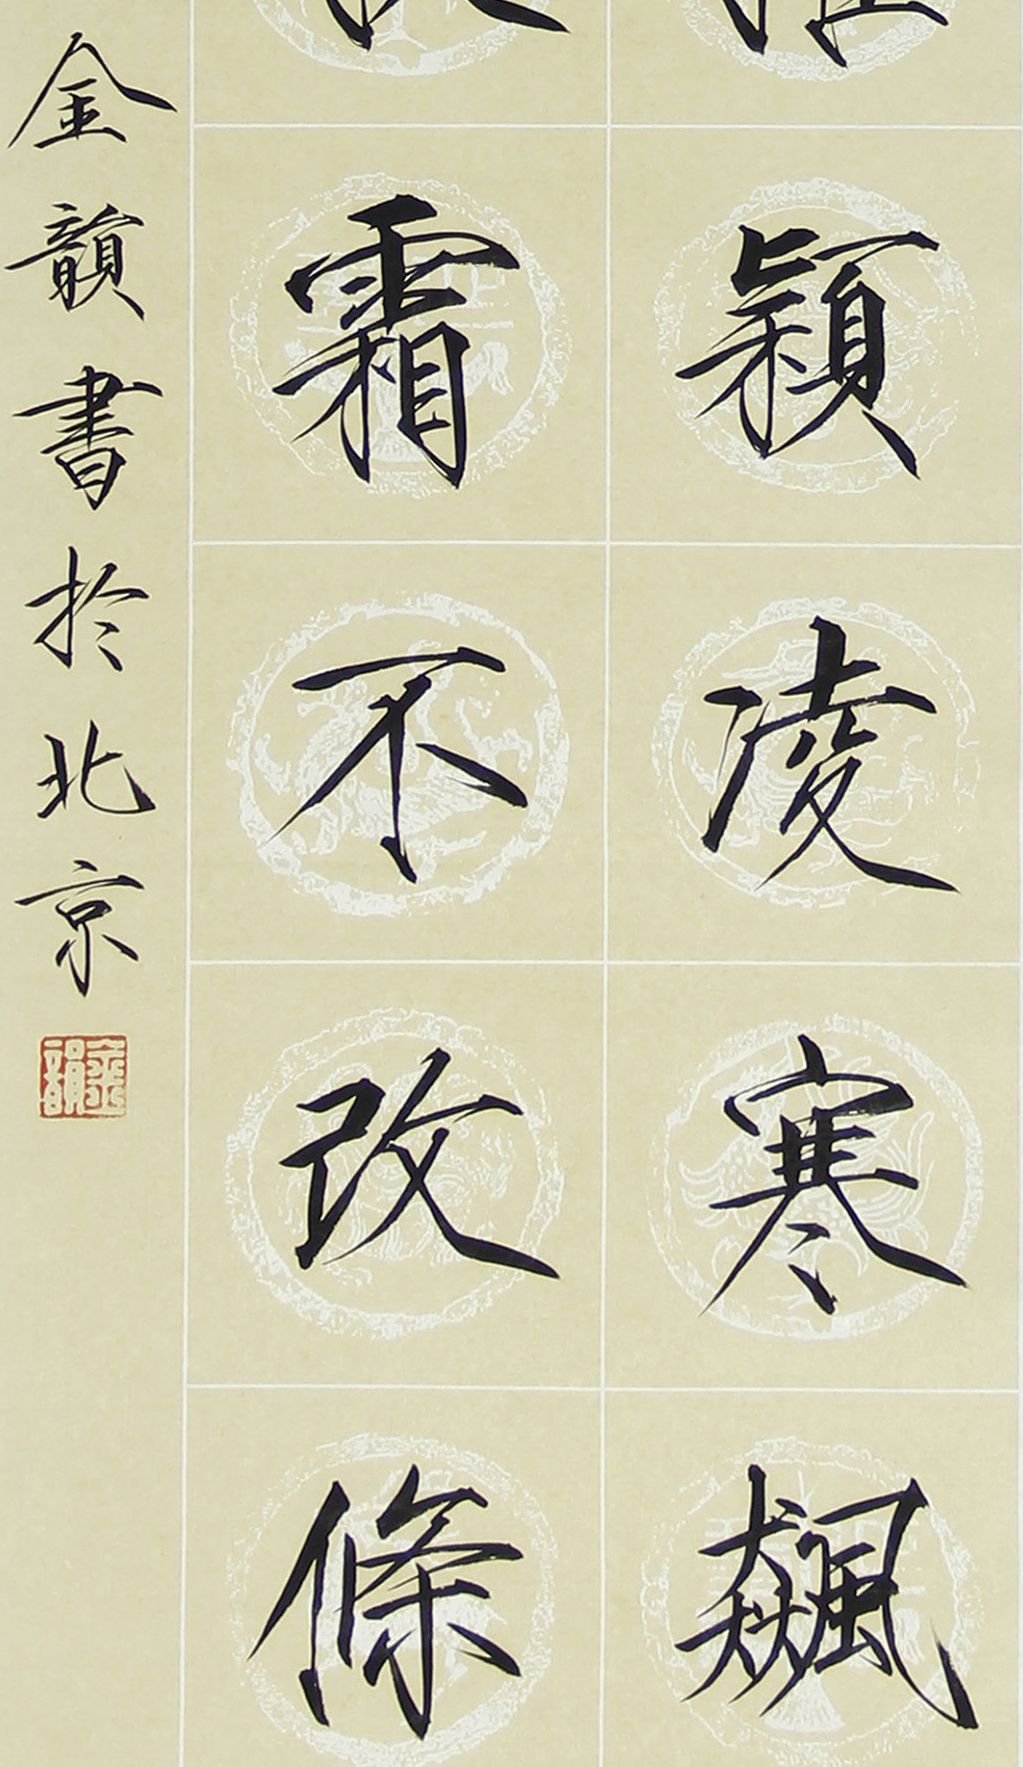 穎凌寒飆
霜不改條
金韻書於北京
金韻